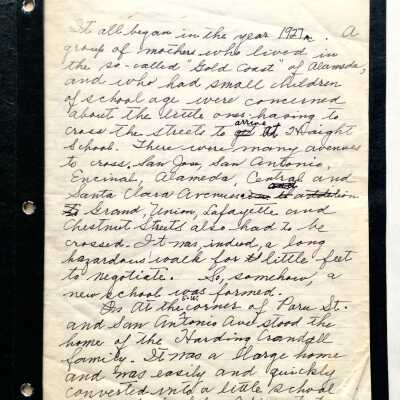 It all began in the year 1927. A
group of mothers who lived in
the so-called "Gold Coast" of Alameda,
and who had small children
of school age were concerned
about the little ones having to
cross the streets to arrive at Haight
School. There were many avenues
to cross; San Jose, San Antonio,
Encinal, Alameda, Central and
Santa Clara Avenues in addition
to Grand, Union, Lafayette and
Chestnut Streets also had to be
crossed. It was, indeed, a long
hazardous walk for little feet
to negotiate. So, somehow, a
new school was formed.
At the s.w. corner of Paru St.
and San Antonio Ave stood the
home of the Harding Crandall
family. It was a large home
and was easily and quickly
converted into a little school